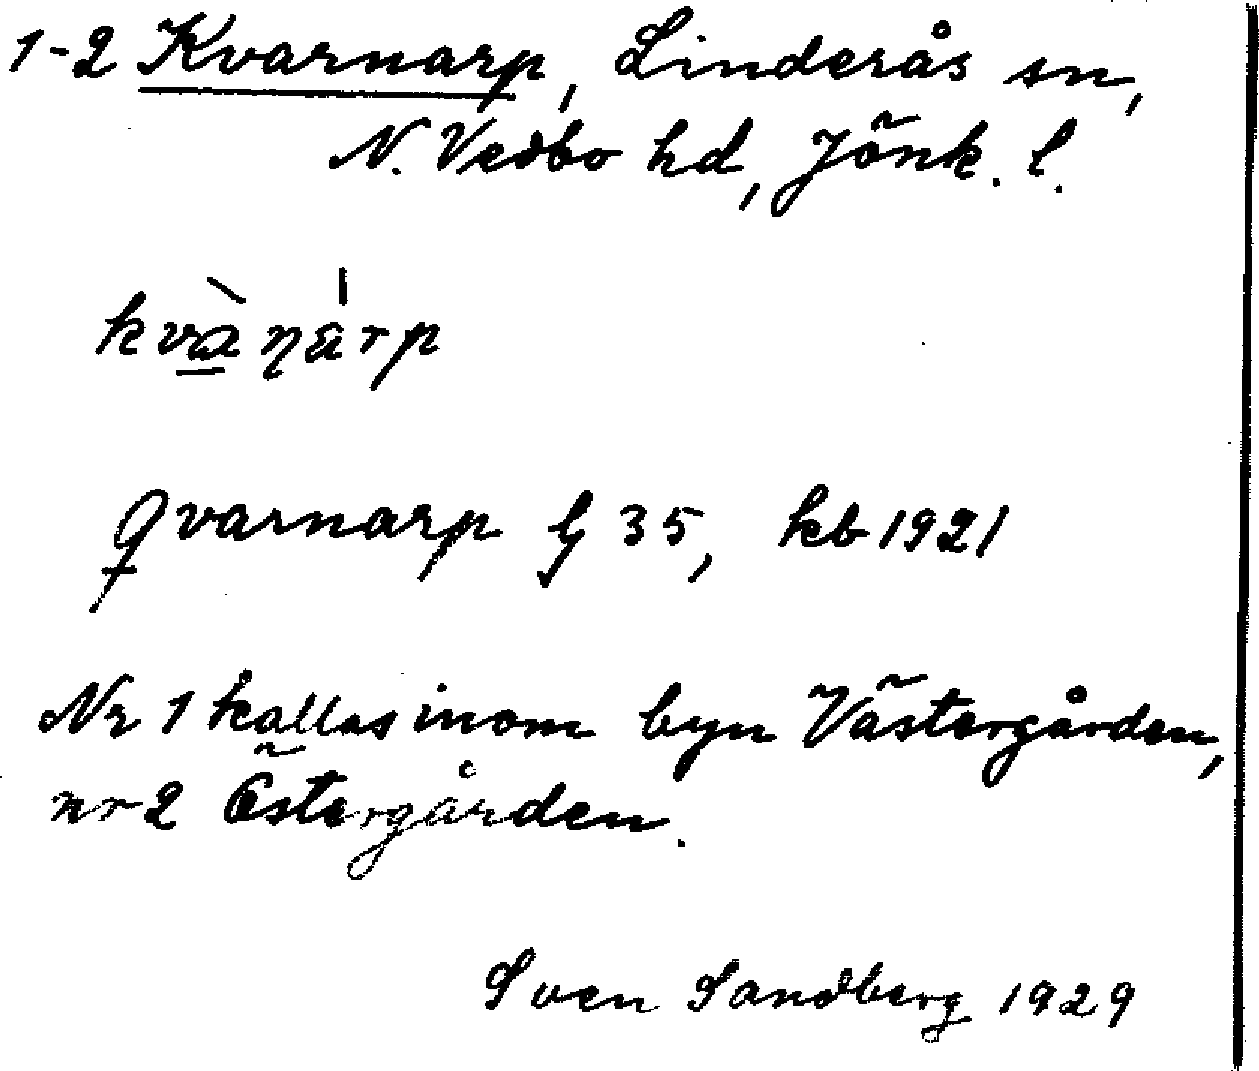 1-2 Kvarnarp, Linderås sn,
N. Vedbo hd, Jönk. l.
Qvarnarp 35, kb 1921
Nr 1 kallas inom byn Västergården,
nr 2 Östergården.
Sven Sandberg 1929